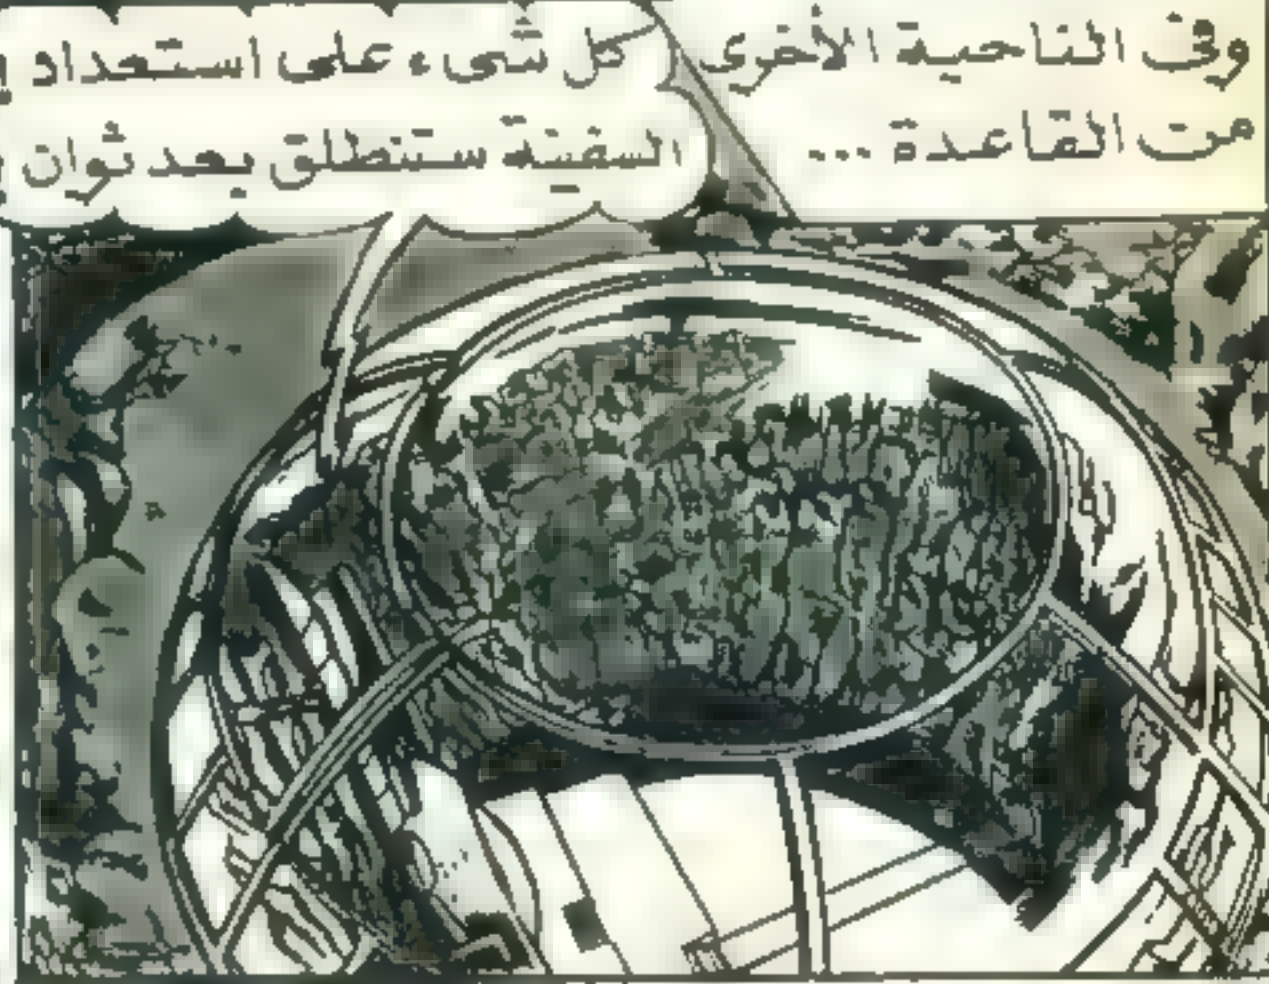 وفى الناحية الأخرى
من القاعدة ...
كل شىء على استعداد
السفينة ستنطلق بعد ثوان